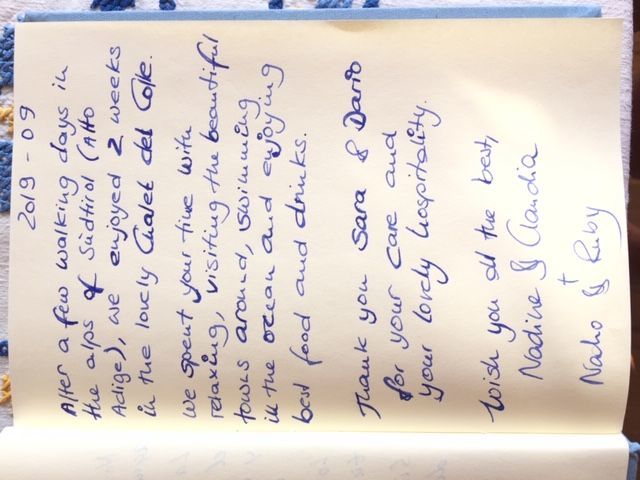 2019-09
After a few walking days in
the alps of Südtirol (Alto
Adige), we enjoyed 2 weeks
in the lovely Chalet del Colle.
We spent your time with
relaxing, visiting the beautiful
towns around, swimming
in the ocean and enjoying
best food and drinks.
Thank you Sara & Dario
for your care and
your lovely hospitality.
Wish you all the best,
Nadine & Claudia
+
Naho & Ruby